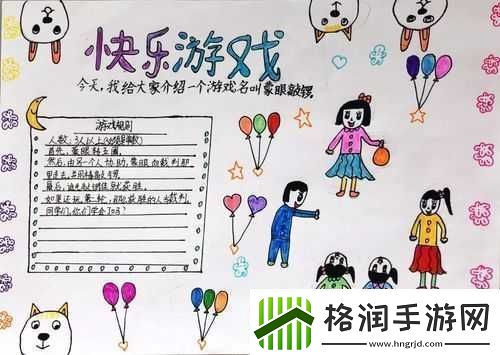 快乐游戏
今天,我给大家介绍一个游戏名叫蒙眼敲锣
游戏规则
人数:3人以上
首先,蒙眼转五圈
然后,由另一个人协助,蒙眼
最后,谁先敲锣谁就获胜。
如果还玩第二轮,那么获胜的人当裁判
同学们,你们学会了吗?
格润手游网
www.hngrjd.com